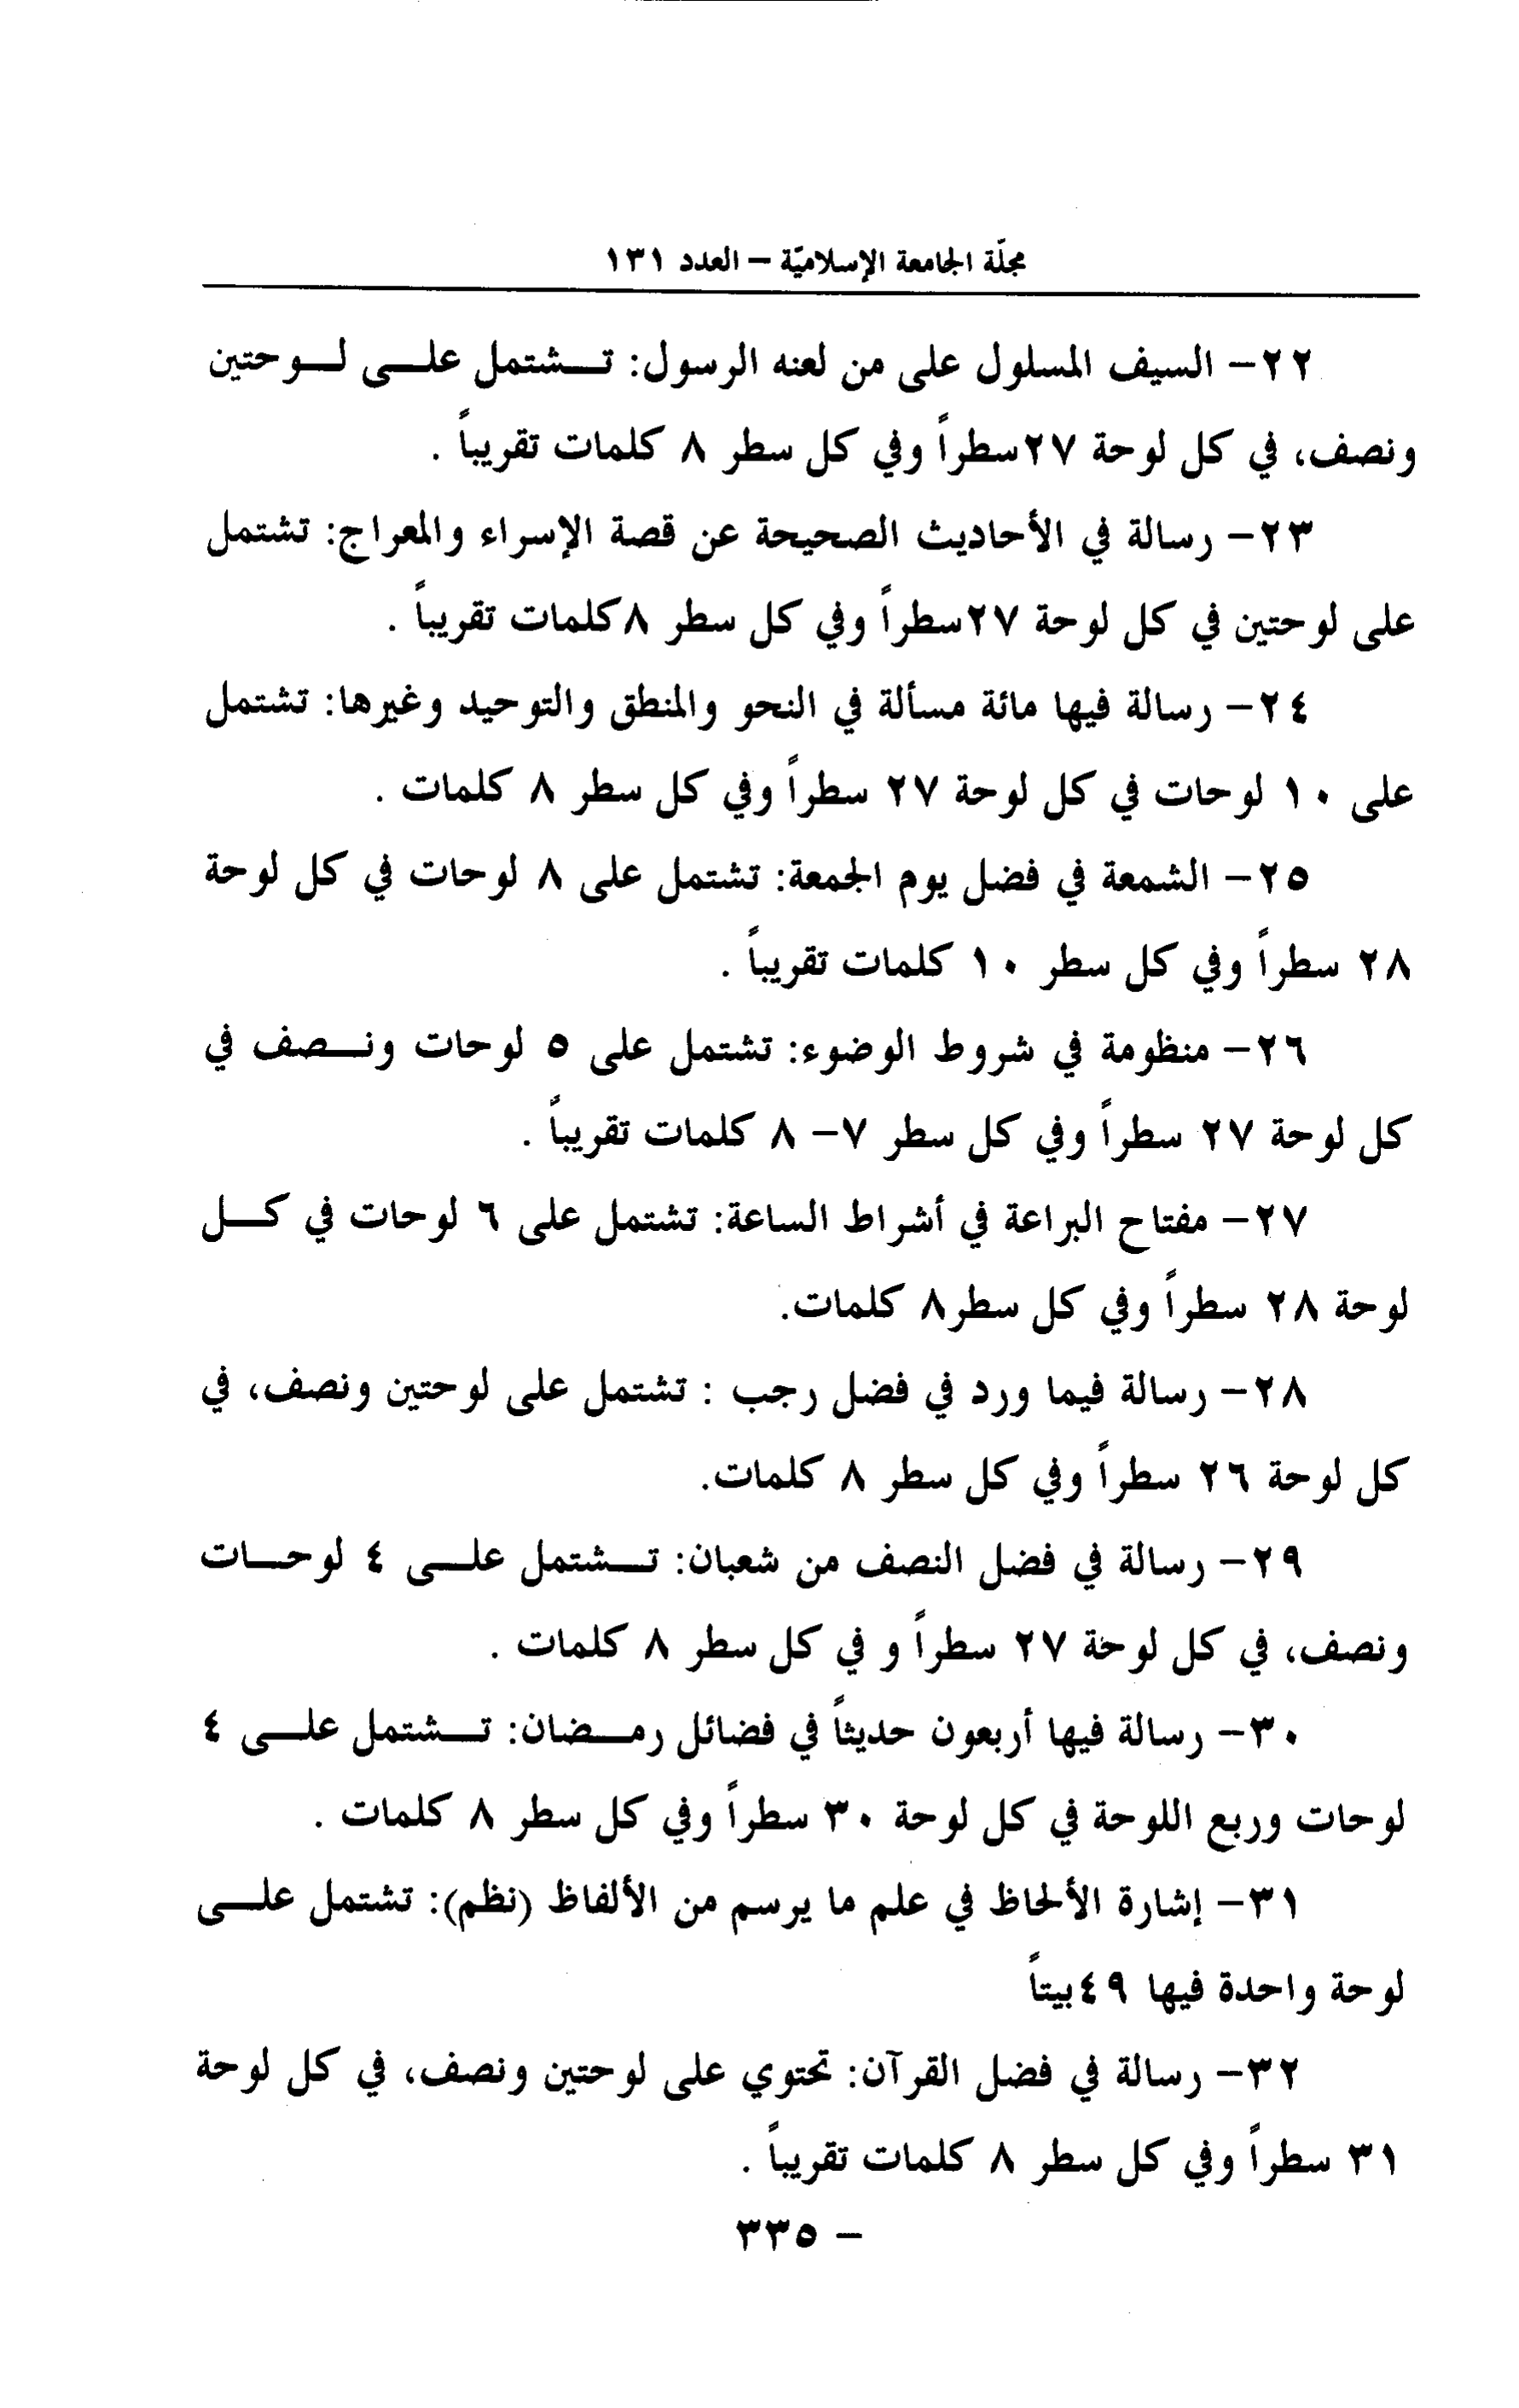 مجلّة الجامعة الإسلاميّة – العدد ١٣١
٢٢– السيف المسلول على من لعنه الرسول: تـشتمل علـى لـوحتين
ونصف، في كل لوحة ٢٧سطراً وفي كل سطر ٨ كلمات تقريباً .
٢٣– رسالة في الأحاديث الصحيحة عن قصة الإسراء والمعراج: تشتمل
على لوحتين في كل لوحة ٢٧سطراً وفي كل سطر ٨كلمات تقريباً .
٢٤– رسالة فيها مائة مسألة في النحو والمنطق والتوحيد وغيرها: تشتمل
على ١٠ لوحات في كل لوحة ٢٧ سطراً وفي كل سطر ٨ كلمات .
٢٥– الشمعة في فضل يوم الجمعة: تشتمل على ٨ لوحات في كل لوحة
٢٨ سطراً وفي كل سطر ١٠ كلمات تقريباً .
٢٦– منظومة في شروط الوضوء: تشتمل على ٥ لوحات ونـصف في
كل لوحة ٢٧ سطراً وفي كل سطر ٧– ٨ كلمات تقريباً .
٢٧– مفتاح البراعة في أشراط الساعة: تشتمل على ٦ لوحات في كـل
لوحة ٢٨ سطراً وفي كل سطر٨ كلمات.
٢٨– رسالة فيما ورد في فضل رجب : تشتمل على لوحتين ونصف، في
كل لوحة ٢٦ سطراً وفي كل سطر ٨ كلمات.
٢٩– رسالة في فضل النصف من شعبان: تـشتمل علـى ٤ لوحـات
ونصف، في كل لوحة ٢٧ سطراً و في كل سطر ٨ كلمات .
٣٠– رسالة فيها أربعون حديثاً في فضائل رمـضان: تـشتمل علـى ٤
لوحات وربع اللوحة في كل لوحة ٣٠ سطراً وفي كل سطر ٨ كلمات .
٣١– إشارة الألحاظ في علم ما يرسم من الألفاظ (نظم): تشتمل علـى
لوحة واحدة فيها ٤٩بيتاً
٣٢– رسالة في فضل القرآن: تحتوي على لوحتين ونصف، في كل لوحة
٣١ سطراً وفي كل سطر ٨ كلمات تقريباً .
– ٣٣٥